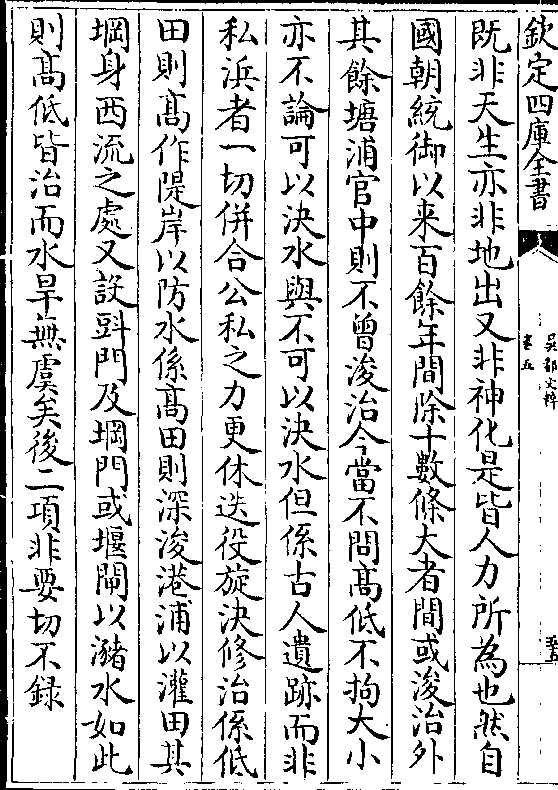 欽定四庫全書
吳都文粹
卷五
既非天生亦非地出又非神化是皆人力所為也然自
國朝統御以来百餘年間除十數條大者間或浚治外
其餘塘浦官中則不曾浚治今當不問髙低不拘大小
亦不論可以決水與不可以決水但係古人遺跡而非
私浜者一切併合公私之力更休迭役旋決修治係低
田則髙作隄岸以防水係髙田則深浚港浦以灌田其
堈身西流之處又設㪷門及堈門或堰閘以瀦水如此
則髙低皆治而水旱無虞矣後二項非要切不録